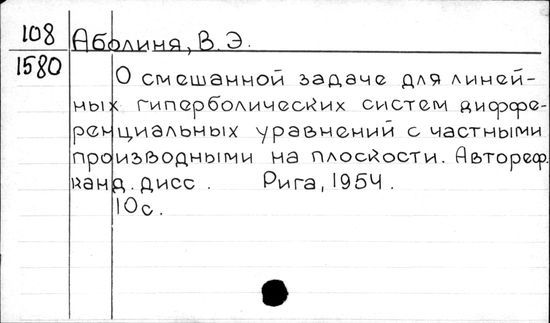 108 Аболиня, В. Э.
1580
О смешанной задаче для линей-
ных гиперболических систем диффе-
ренциальных уравнений с частными
производными на плоскости. Автореф.
канд. дисс. Рига, 1954.
10с.